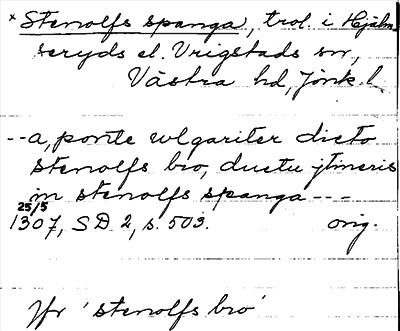 × Stenolfs spanga, trol. i Hjälm-
seryds el. Vrigstads sn,
Västra hd, Jönk. l.
--a, ponte wlgariter dicto
stenolfs bro, ductu jtineris
in stenolfs spanga ---
25/5
1307, SD. 2, s. 503. orig.
Jfr 'stenolfs bro'